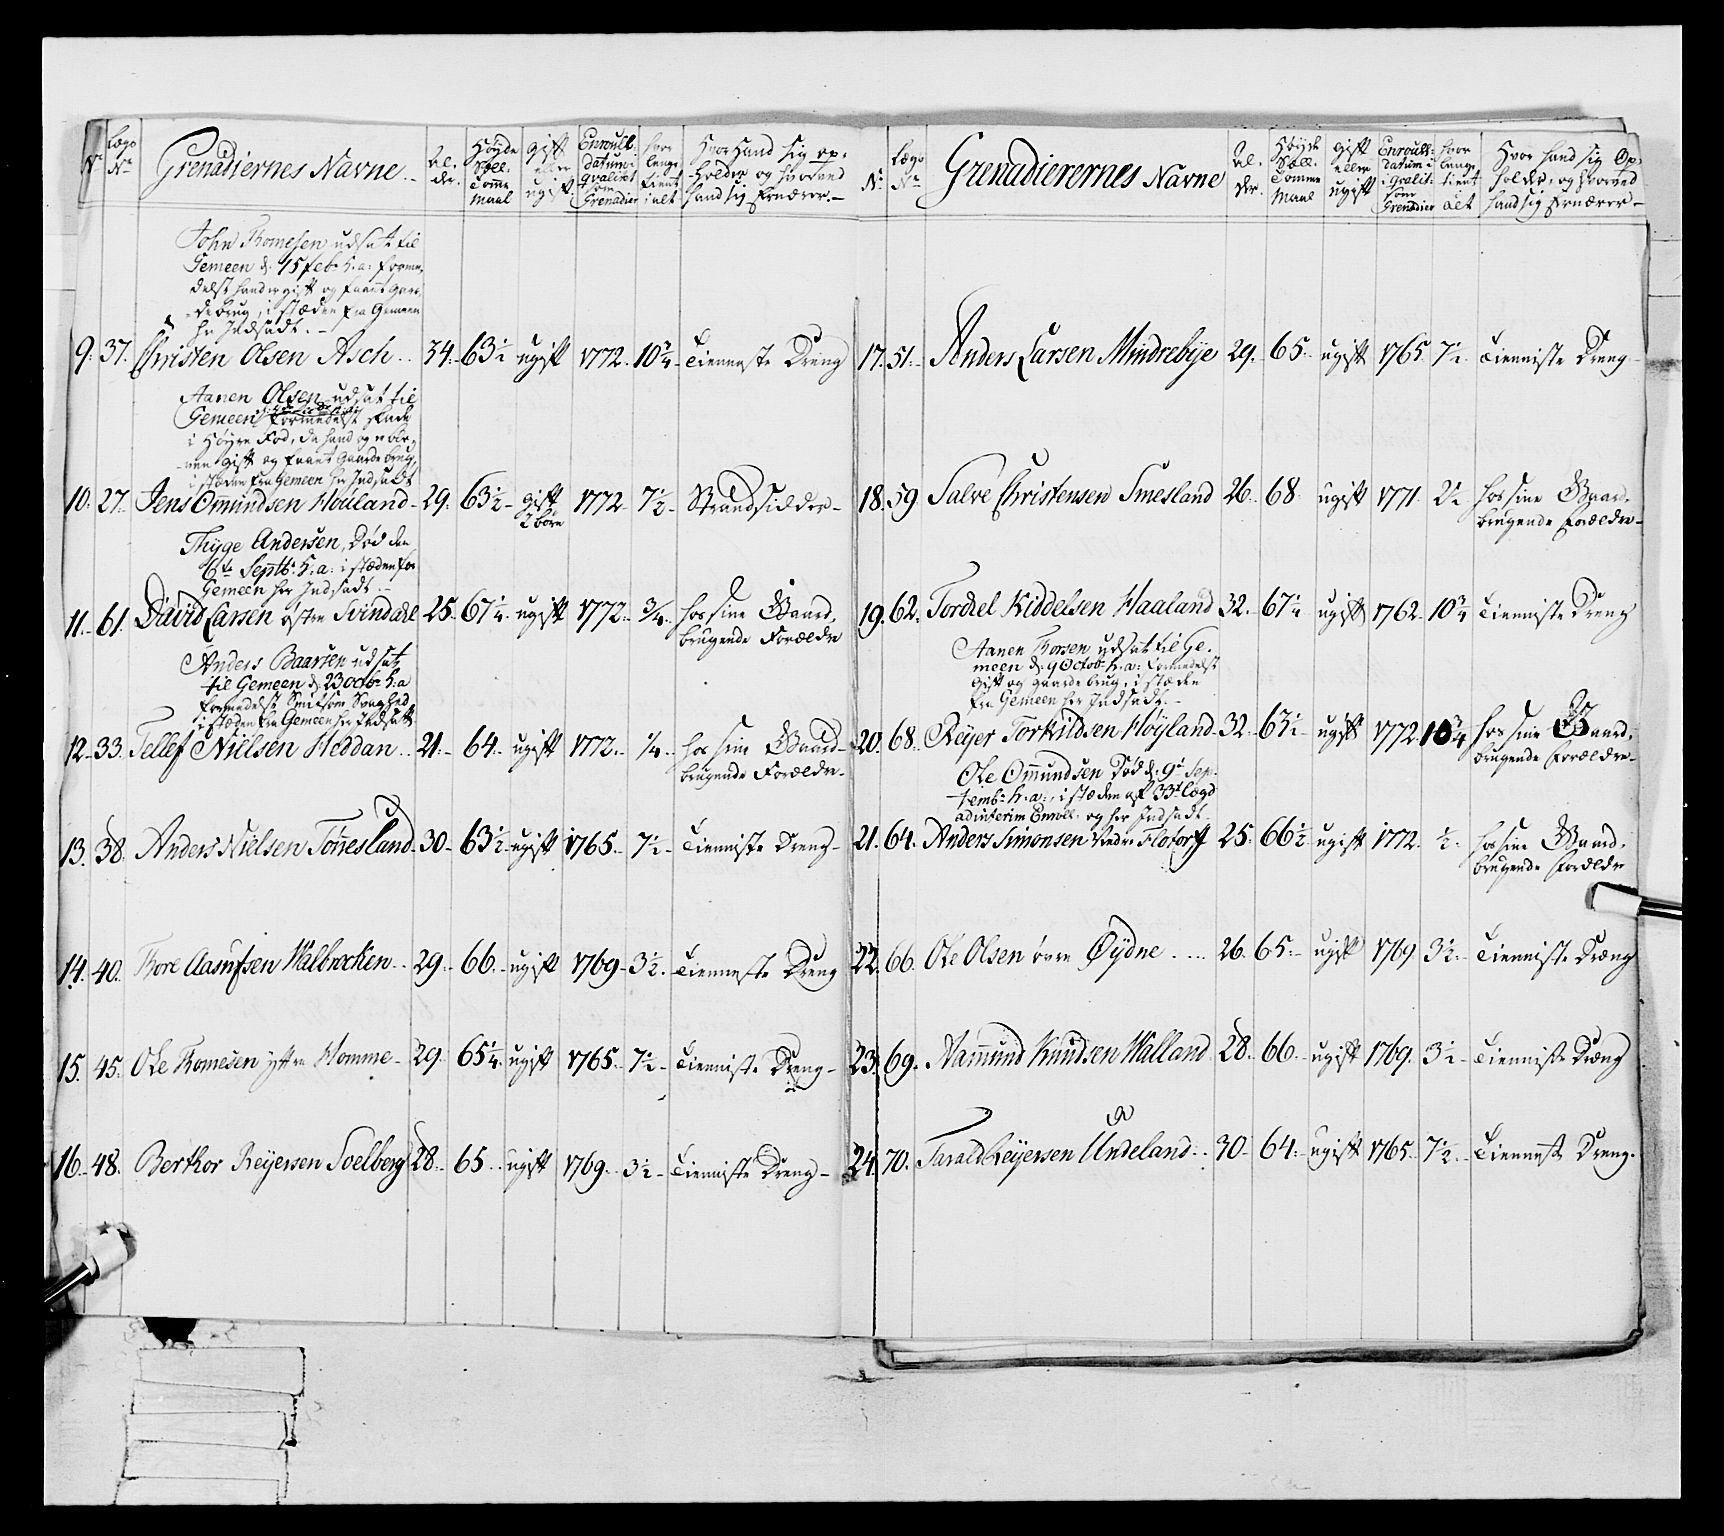 No
Lægs No
Grenadiernes Navne
Al-
der.
Høyde
Sæll.
Tomme
Maal
gift
eller
ugift
Enroull.
datum i
qvalitet
som
Grenadier
hvor
lange
tient
i alt
Hvor Hand sig op-
holder og hvorved
hand sig Ernærer.
John Thomesen udsat til
Gemeen d. 15 feb: h: a: forme-
delst hand er gift og faaet gaar-
debrug, i stæden fra Gemeen
her Indsadt.
9. 37. Christen Olsen Asch 34. 63½ ugift 1772. 10¾ Tienneste Dreng
Aanen Olsen udsat til
Gemeen formedelst skade
i Høyre Fod, da hand og er
gift og faaet Gaardebrug,
i stæden fra Gemeen her Indsadt
10. 27. Jens Omundsen Houland 29. 63½ gift 2 børn 1772 7½ Strandsidder
Thyge Andersen, Død den
6te Septb: h: a: i stæden fra
Gemeen her Indsadt
11. 61. David Larsen østre Svindahl 25. 67¼ ugift 1772. ¾ hos sine Gaard-
brugende Forældre
Anders Baarsen udsat
til Gemeen d: 23 octb: h: a
formedelst Smitsom Svaghed
i stæden fra Gemeen her Indsadt
12. 33. Tellef Nielsen Heddan 21. 64. ugift 1772. ¼ hos sine Gaard-
brugende Forældre
13. 38. Anders Nielsen Tønnesland 30. 63½ ugift 1765. 7½ Tienniste Dreng
14. 40. Thore Aasulfsen Walbrocken 29. 66. ugift 1769 3½. Tienneste Dreng
15. 45. Ole Thomesen yttre Homme 29. 65¼ ugift 1765. 7½ Tienniste Dreng
16. 48. Berthor Reyersen Solberg 28. 65. ugift 1769. 3½ Tienniste Dreng
No
Lægs No
Grenadierernes Navne
Al-
der.
Høyde
Sæll.
Tomme
Maal
gift
eller
ugift
Enroull:
datum i
i qvalit:
som
Grenadier
hvor
lange
tient
alt
Hvor hand sig Op-
holder, og hvorved
hand sig Ernærer
17. 51. Anders Larsen Mindrebøe 29. 65. ugift 1765. 7½ Tienniste Dreng
18. 59. Salve Christensen Smesland 26. 68 ugift 1771. 2½ hos sine Gaard-
brugende Forældre
19. 62. Tordkel Kiddelsen Haaland 32. 67½ ugift 1762. 10¾ Tienniste Dreng
Aanen Thorsen udsat til Ge-
meen d: 9 Octob: h: a: formedelst
gift og gaardebrug, i stæden
fra Gemeen her Indsadt.
20. 68. Reyer Torkildsen Høyland 32. 63½ ugift 1772 10¾ hos sine Gaard-
brugende Forældre
Ole Omundsen Død d: 9de Sep-
temb: h: a:, i stæden af 33t lægd
ad interim Enroll: og her Indsadt
21. 64. Anders Simonsen Nedre Flotorp 25. 66½ ugift 1772. ½. hos sine Gaard-
brugende Forældre
22. 66. Ole Olsen øvre Øydne 26. 65. ugift 1769 3½. Tienniste Dræng
23. 69. Aamund Knudsen Walland 28. 66. ugift 1769. 3½ Tienniste Dræng
24. 70. Tarald Reyersen Undeland 30. 64. ugift 1765 7½. Tienneste Dreng.